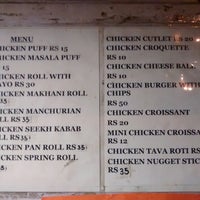 MENU
CHICKEN PUFF RS 15
CHICKEN MASALA PUFF
RS 15
CHICKEN ROLL WITH
MAYO RS 30
CHICKEN MAKHANI ROLL
RS 35
CHICKEN MANCHURIAN
ROLL RS 35
CHICKEN SEEKH KABAB
ROLL RS 35
CHICKEN PAN ROLL RS 35
CHICKEN SPRING ROLL
RS 35
CHICKEN CUTLET RS 20
CHICKEN CROQUETTE
RS 10
CHICKEN CHEESE BALL
RS 10
CHICKEN BURGER WITH
CHIPS
RS 50
CHICKEN CROISSANT
RS 20
MINI CHICKEN CROISSA
RS 12
CHICKEN TAVA ROTI RS
CHICKEN NUGGET STICK
RS 35